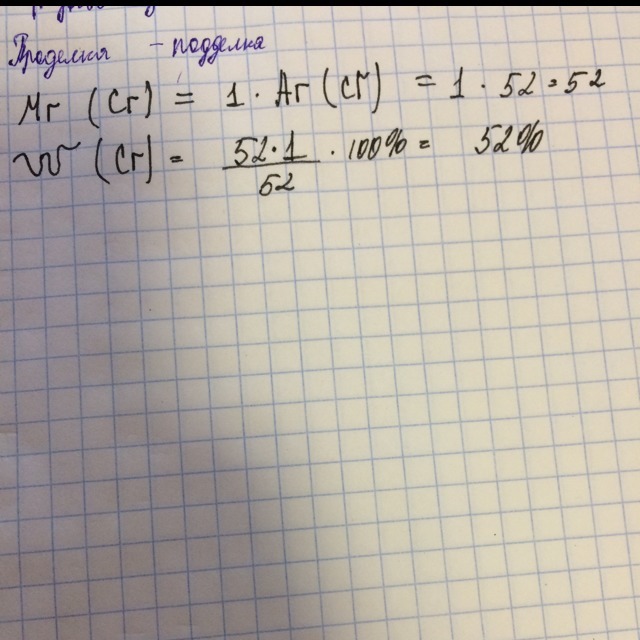 Проделки - подделка
Mr (Cr) = 1 · Ar (Cr) = 1 · 52 = 52
W (Cr) = 52·1 / 52 · 100% = 52%